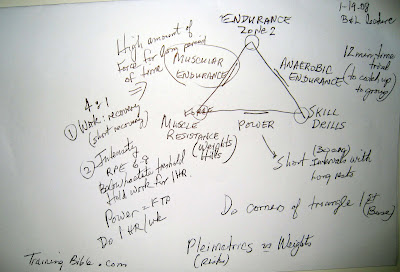 1-19-08
B&L Lecture
ENDURANCE
Zone 2
High amount of
Force for long period
of force
MUSCULAR
ENDURANCE
ANAEROBIC
ENDURANCE
12 min time
trial
(to catch up
to group)
4:1
① Work:recovery
(short recovery)
② Intensity
RPE 6-9
Below lactate threshold
Hold work for 1 HR.
Power = FTP
Do 1 HR/wk
Force
MUSCLE
RESISTANCE
(Weights
Hills)
POWER
SKILL
DRILLS
Short Intervals with
Long rests
Do corners of triangle 1st
(Base)
Pleimetrics vs Weights
(risks)
Training Bible.com